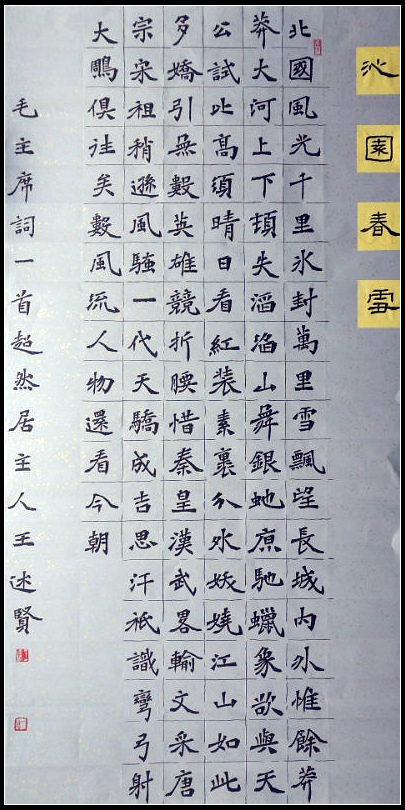 沁園春雪
北國風光千里氷封萬里雪飄望長城內外惟餘莽
莽大河上下頓失滔滔山舞銀虵原馳蠟象欲與天
公試比高須晴日看紅裝素裹分外妖嬈江山如此
多嬌引無數英雄競折腰惜秦皇漢武畧輸文采唐
宗宋祖稍遜風騷一代天驕成吉思汗祇識彎弓射
大鵰俱往矣數風流人物還看今朝
毛主席詞一首超然居主人王述賢